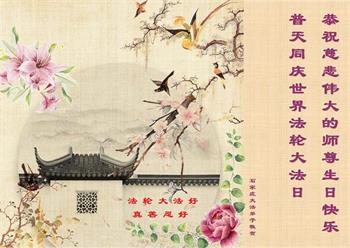 恭祝慈悲伟大的师尊生日快乐
普天同庆世界法轮大法日
石家庄大法弟子敬贺
法轮大法好
真善忍好